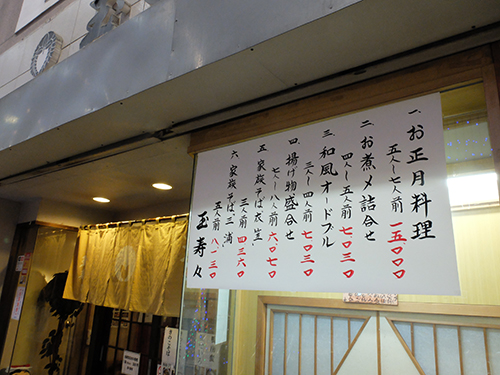 一、お正月料理
五人〜七人前 一五〇〇〇
二、お煮〆詰合せ
四人〜五人前 七〇三〇
三、和風オードブル
三人〜四人前 七〇三〇
四、揚げ物盛合せ
七〜八人前 六〇七〇
五、家族そば
三人前 四三六〇
六、家族そば
五人前 八一三〇
玉寿々